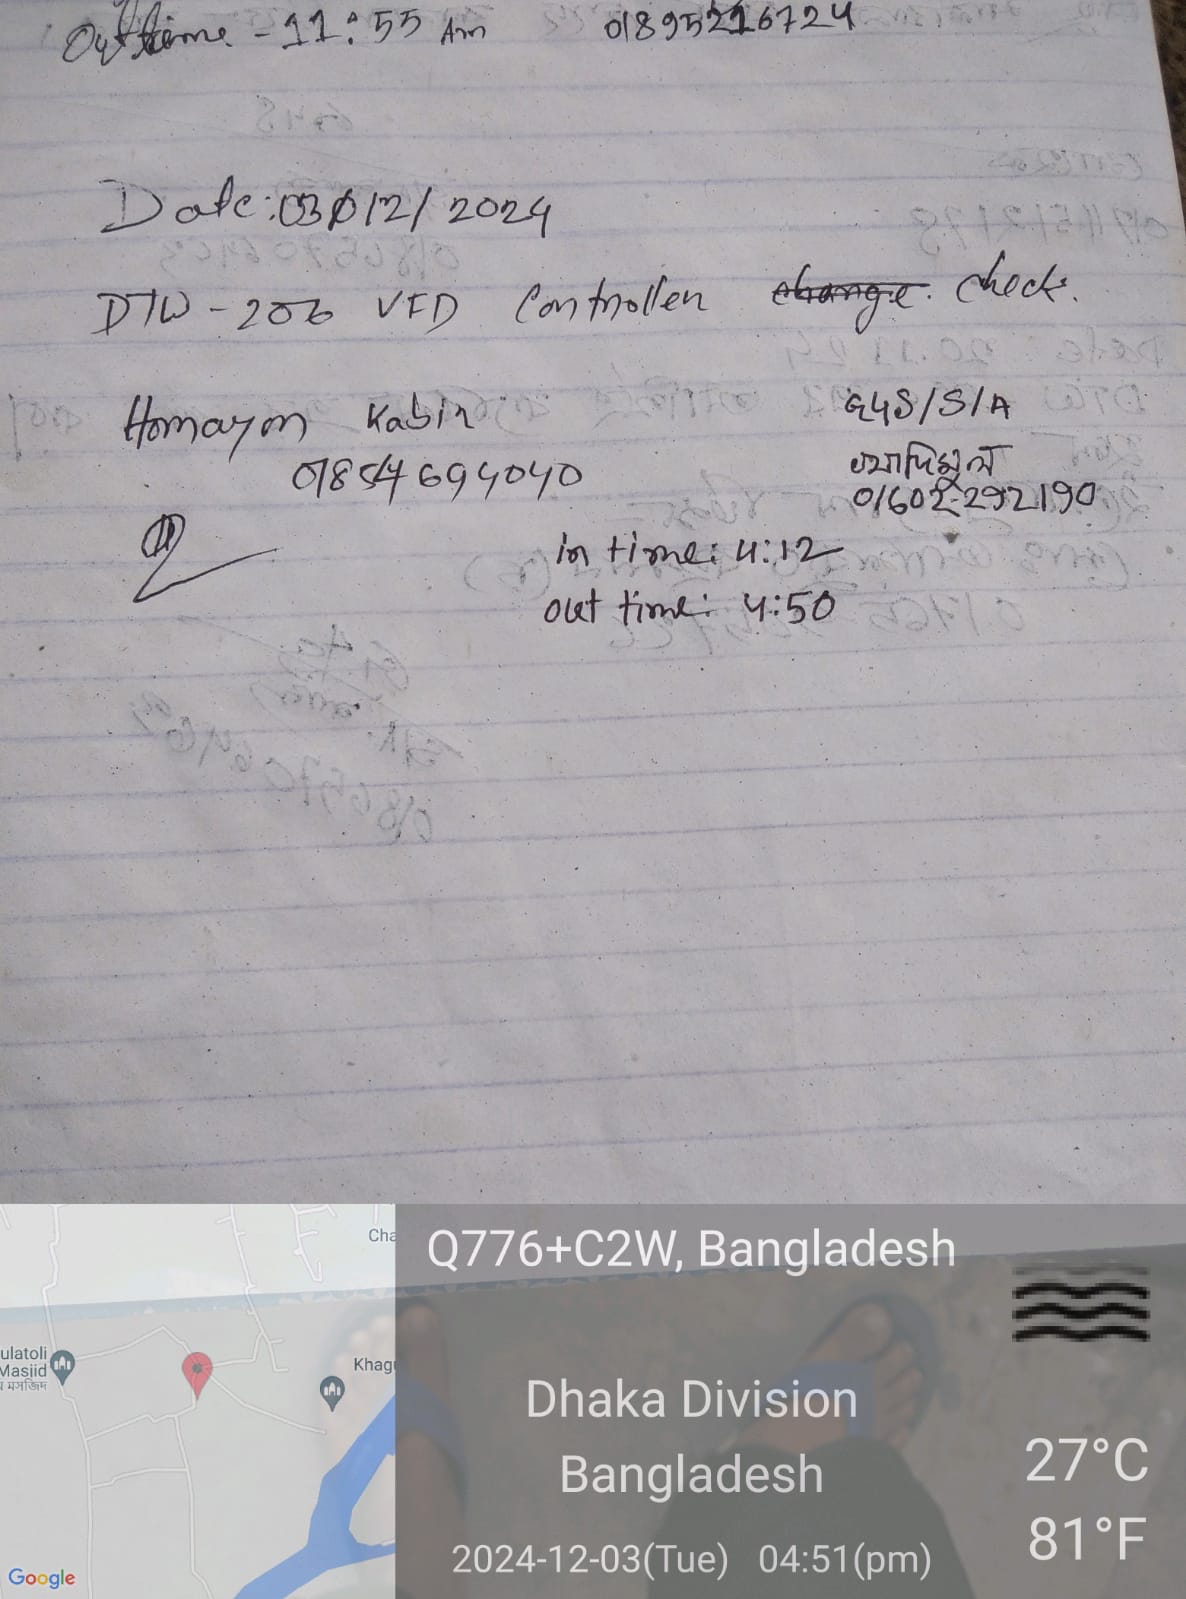 Out time - 11:55 Am 01895216724
Date: 03/12/2024
DTW - 206 VFD Controller change. Check.
Homayon Kabir G4S/S/A
01854694040 খাদিমুল
01602-292190
in time: 4:12
out time: 4:50
Q776+C2W, Bangladesh
Dhaka Division
Bangladesh
2024-12-03(Tue) 04:51(pm)
27°C
81°F
Cha
ulatoli
Masjid
মসজিদ
Khag
Google